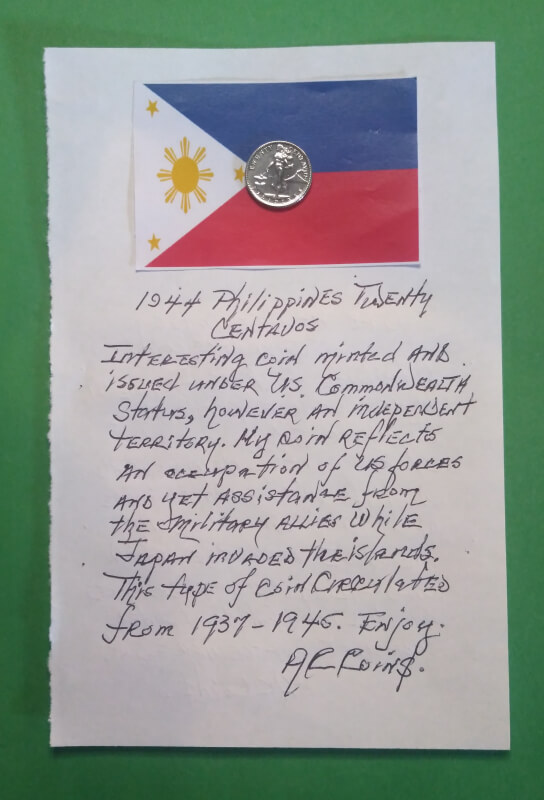 TWENTY CENTAVOS
1944 Philippines Twenty
Centavos
Interesting coin minted and
issued under U.S. Commonwealth
Status, however an independent
territory. My coin reflects
an occupation of US forces
and yet assistance from
the military allies while
Japan invaded the islands.
This type of coin circulated
from 1937-1945. Enjoy.
AC Coins.